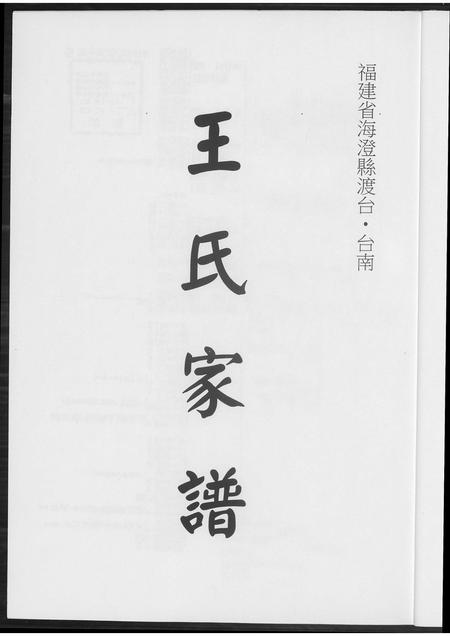 福建省海澄縣渡台・台南
王氏家譜